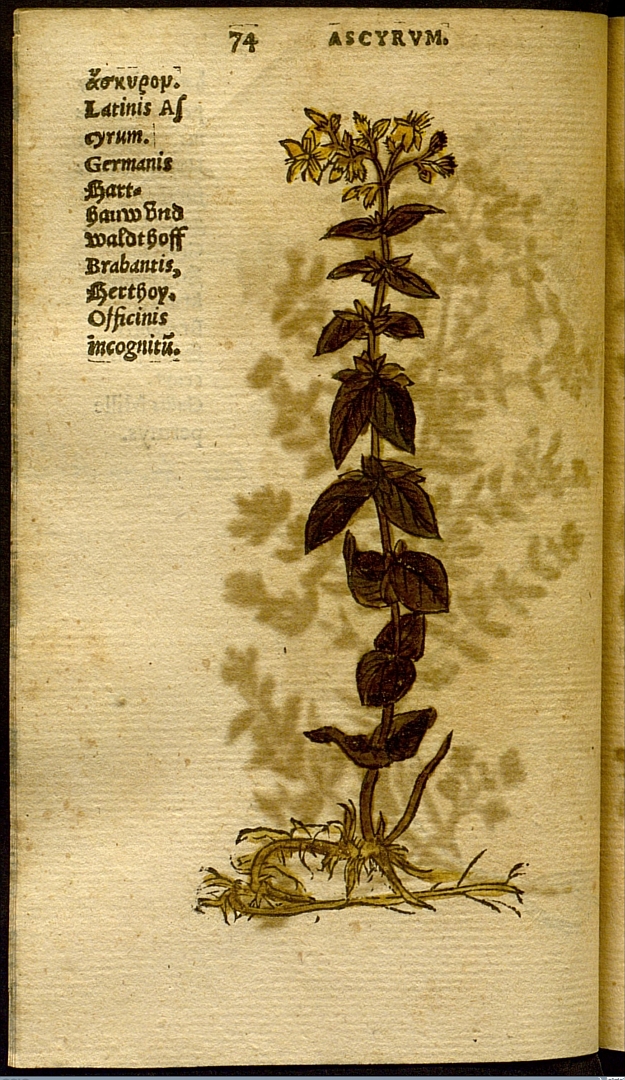 74 ASCYRVM.
ἄσκυρον.
Latinis Aſ
cyrum.
Germanis
Hart-
hauw vnd
waldthoff
Brabantis,
Herthoy.
Officinis
incognitũ.